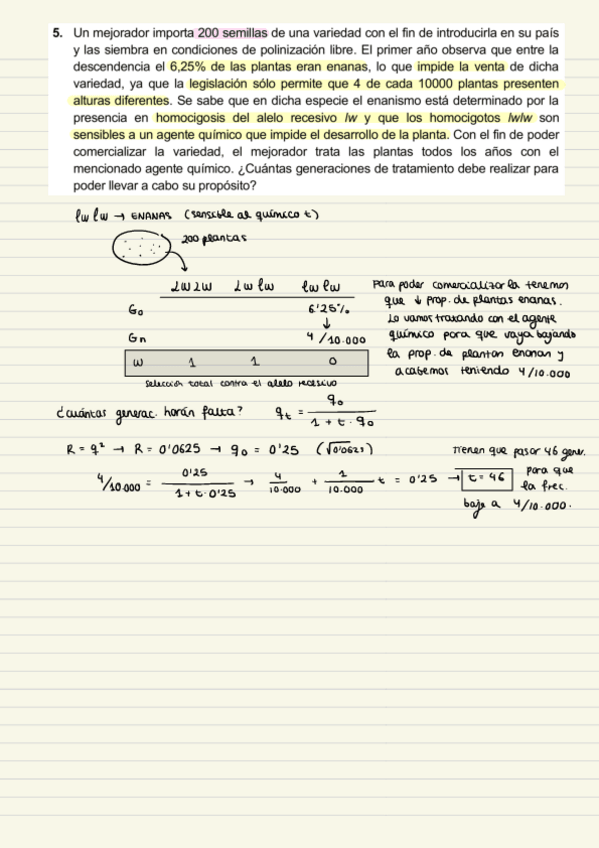 5. Un mejorador importa 200 semillas de una variedad con el fin de introducirla en su país
y las siembra en condiciones de polinización libre. El primer año observa que entre la
descendencia el 6,25% de las plantas eran enanas, lo que impide la venta de dicha
variedad, ya que la legislación sólo permite que 4 de cada 10000 plantas presenten
alturas diferentes. Se sabe que en dicha especie el enanismo está determinado por la
presencia en homocigosis del alelo recesivo lw y que los homocigotos lwlw son
sensibles a un agente químico que impide el desarrollo de la planta. Con el fin de poder
comercializar la variedad, el mejorador trata las plantas todos los años con el
mencionado agente químico. ¿Cuántas generaciones de tratamiento debe realizar para
poder llevar a cabo su propósito?
lw lw → ENANAS (sensible al químico t)
200 plantas
LW LW LW lw lw lw
G₀ 6'25%
↓
Gn 4/10.000
W 1 1 0
Selección total contra el alelo recesivo
Para poder comercializarla tenemos
que ↓ prop. de plantas enanas.
Lo vamos tratando con el agente
químico para que vaya bajando
la prop. de plantan enanan y
acabemos teniendo 4/10.000
¿cuántas generac. harán falta? qt = q₀ / 1 + t · q₀
R = q² → R = 0'0625 → q₀ = 0'25 (√0'0625)
4/10.000 = 0'25 / 1 + t · 0'25 → 4/10.000 + 1/10.000 t = 0'25 → t = 46
Tienen que pasar 46 gener.
para que
la frec.
baje a 4/10.000.